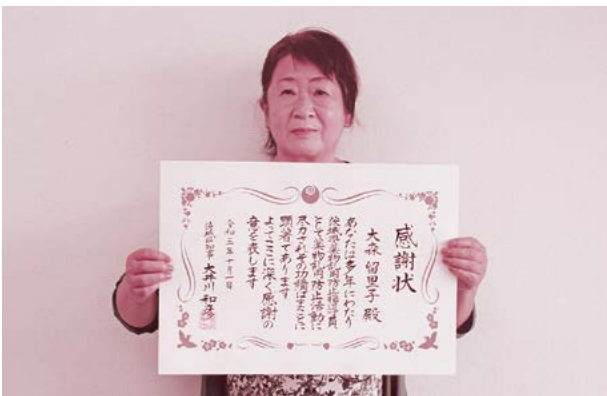 感謝状
大森 留里子 殿
あなたは多年にわたり
茨城県薬物乱用防止指導員
として薬物乱用防止活動に
尽力されその功績はまことに
顕著であります
よってここに深く感謝の
意を表します
令和三年十月一日
茨城県知事 大井川 和彦